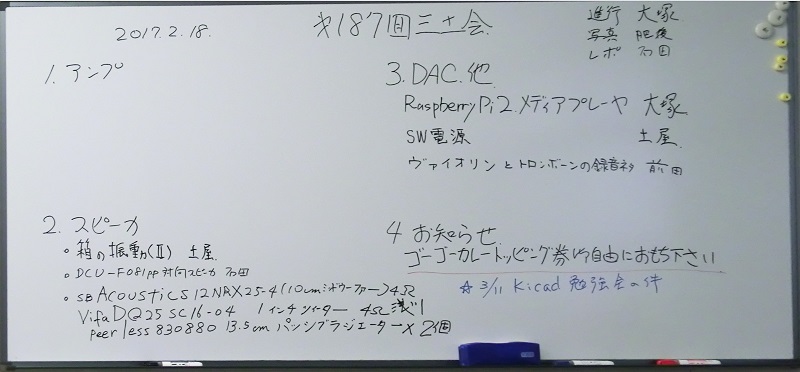 2017.2.18.
第187回三土会
進行 大塚
写真 肥後
レポ 石田
1. アンプ
2. スピーカ
・箱の振動(Ⅱ) 土屋
・DCU-F081pp 対向スピーカ 石田
・SB Acoustics 12NRX25-4(10cmミドウーファー)4Ω
VifaDQ25SC16-04 1インチツイーター 4Ω
Peerless 830880 13.5cm パッシブラジエーター×2個
3. DAC.他
RaspberryPi2.メディアプレーヤ 大塚
SW電源 土屋
ヴァイオリンとトロンボーンの録音ネタ 前田
4 お知らせ
ゴーゴーカレートッピング券 自由におもち下さい
☆ 3/11 Kicad 勉強会の件